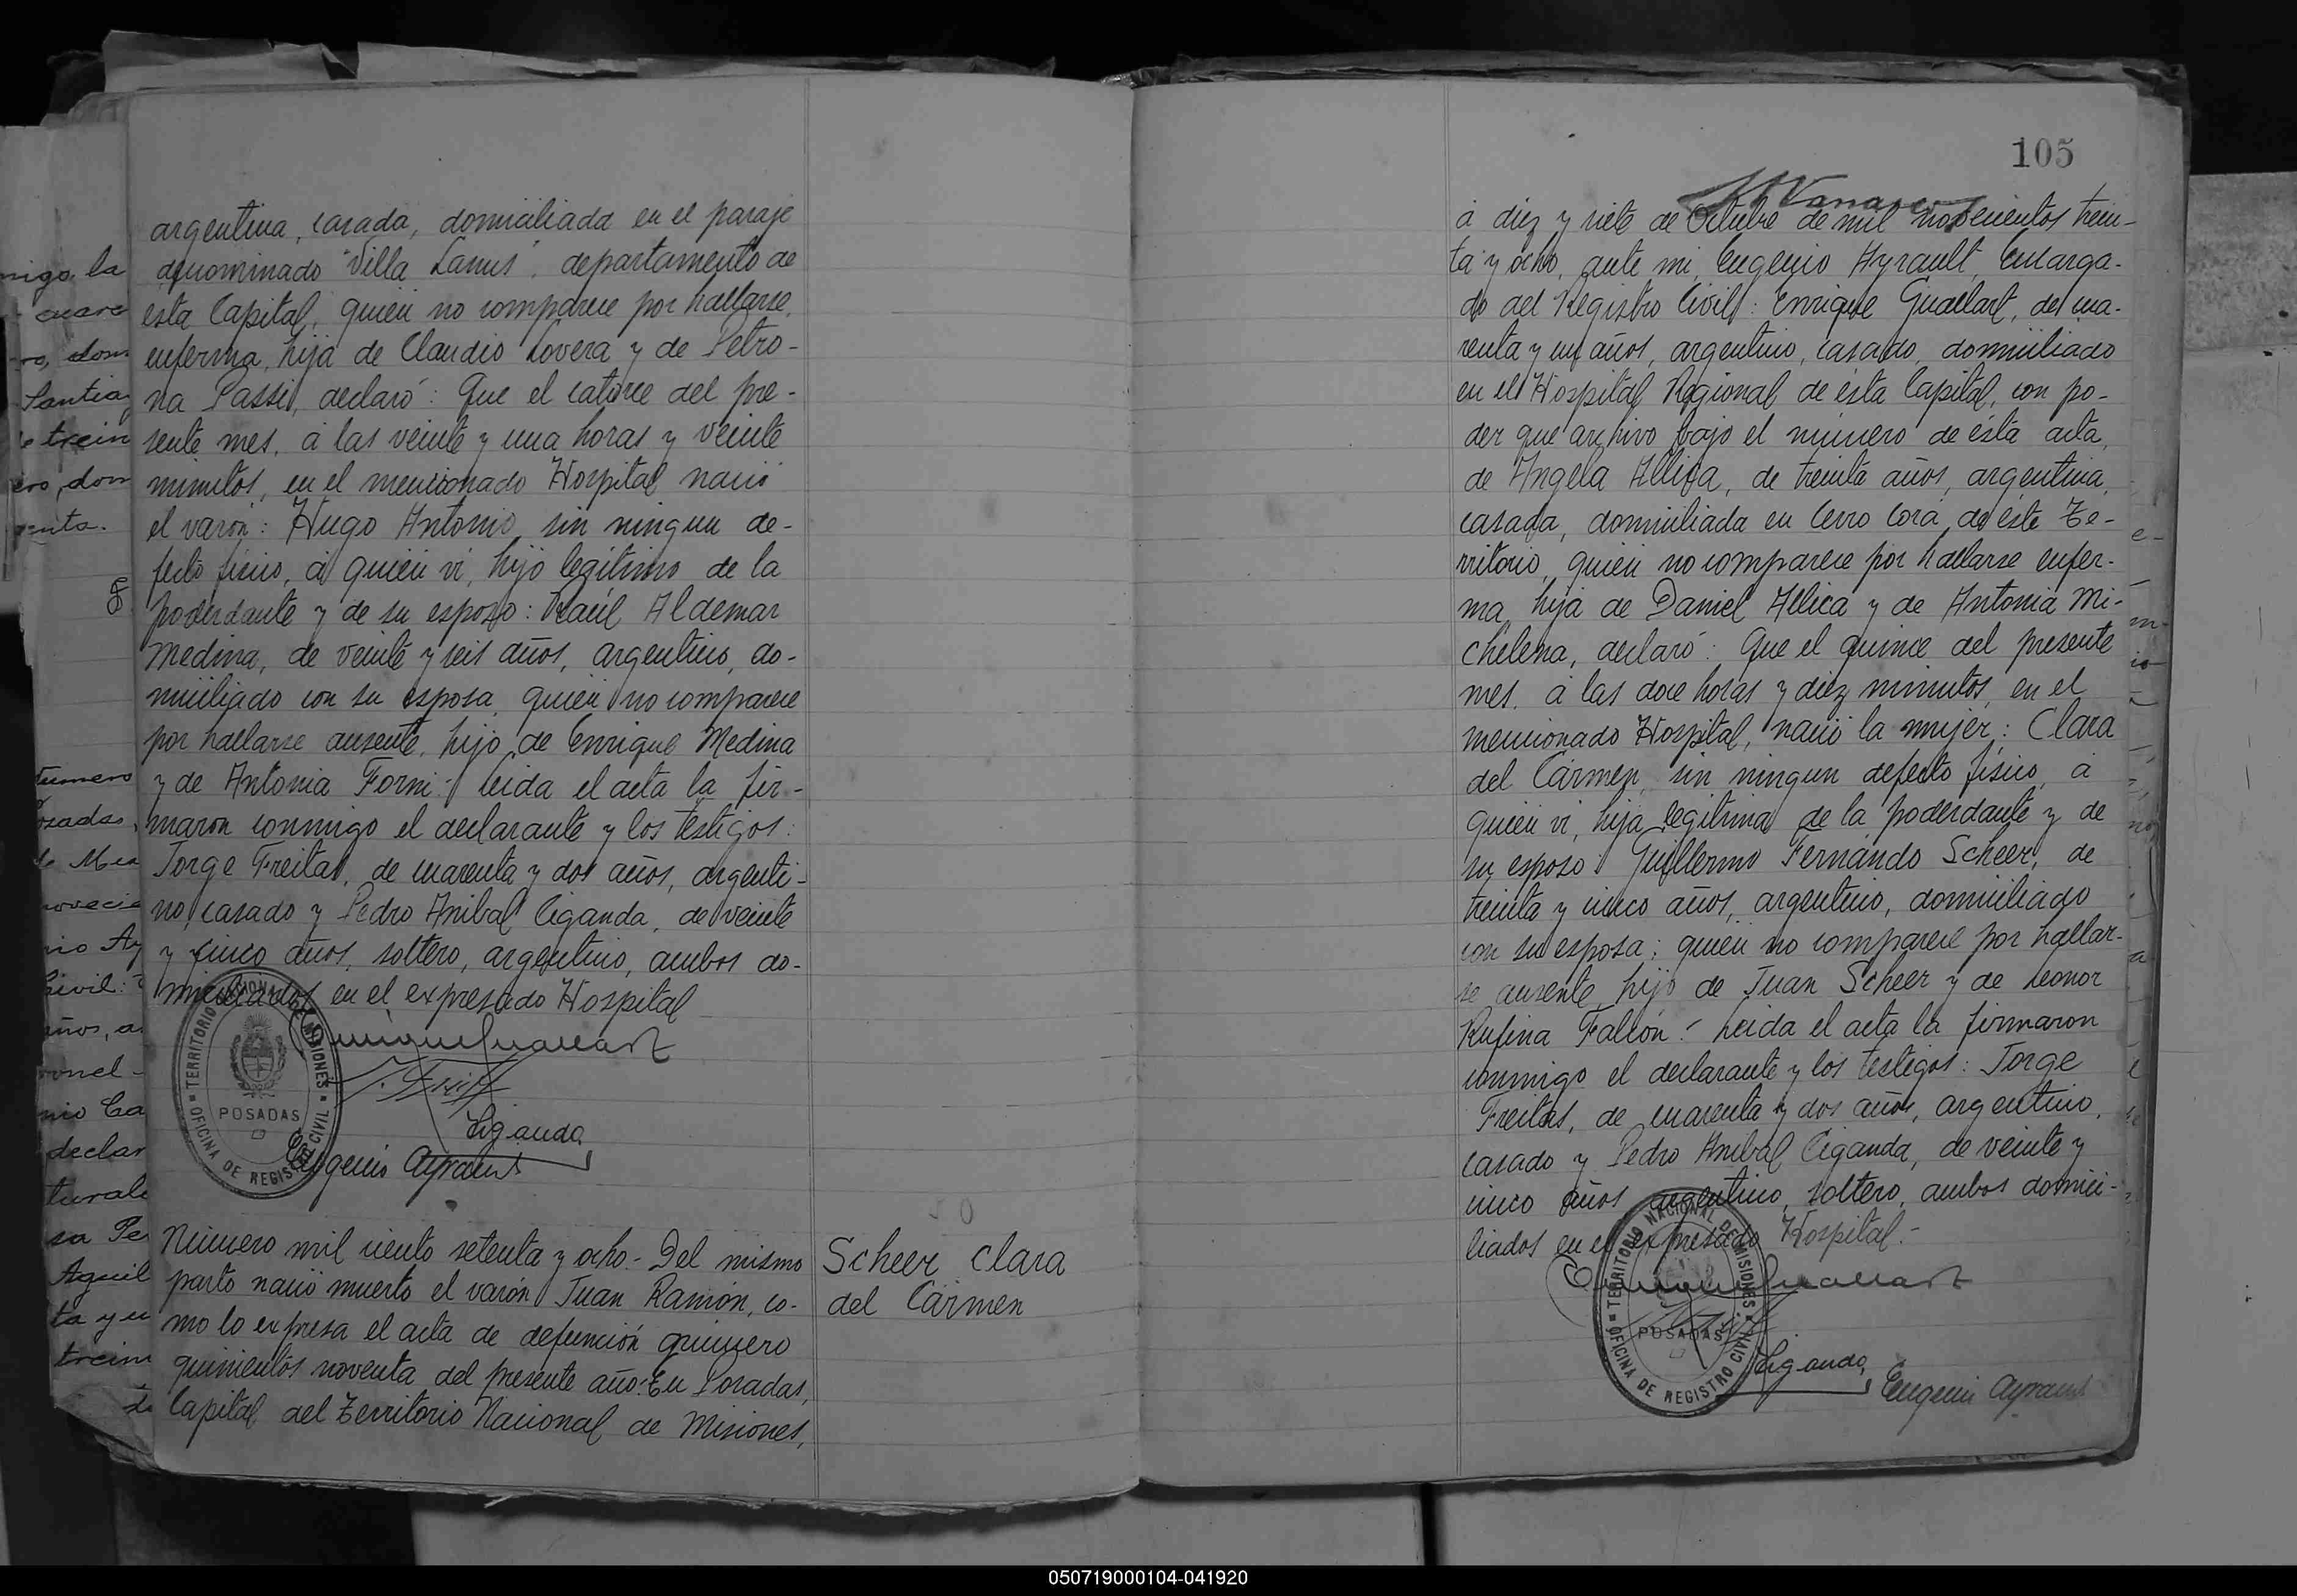 argentina, casada, domiciliada en el paraje
denominado "Villa Lanus", departamento de
esta Capital, quien no comparece por hallarse
enferma, hija de Claudio Lovera y de Petro-
na Passi, declaró: Que el catorce del pre-
sente mes, á las veinte y una horas y veinte
minutos, en el mencionado Hospital nació
el varón: Hugo Antonio, sin ningun de-
fecto físico, á quien vi, hijo legítimo de la
poderdante y de su esposo: Raúl Aldemar
Medina, de veinte y seis años, argentino, do-
miciliado con su esposa, quien no comparece
por hallarse ausente, hijo de Enrique Medina
y de Antonia Forni.- Leida el acta la fir-
maron conmigo el declarante y los testigos:
Jorge Freitas, de cuarenta y dos años, argenti-
no, casado y Pedro Anibal Ciganda, de veinte
y cinco años, soltero, argentino, ambos do-
miciliados en el expresado Hospital
Enrique Guallart
J. Freitas
Ciganda
Eugenio Ayrault
TERRITORIO NACIONAL DE MISIONES
POSADAS
OFICINA DE REGISTRO CIVIL
Número mil ciento setenta y ocho.- Del mismo
parto nació muerto el varón Juan Ramón, co-
mo lo expresa el acta de defunción número
quinientos noventa del presente año.- En Posadas,
Capital del Territorio Nacional de Misiones,
Scheer Clara
del Cármen
105
á diez y siete de Octubre de mil novecientos trein-
ta y ocho, ante mi, Eugenio Ayrault, Encarga-
do del Registro Civil: Enrique Guallart, de cua-
renta y un años, argentino, casado, domiciliado
en el Hospital Regional de ésta Capital, con po-
der que archivo bajo el número de ésta acta,
de Angela Allica, de treinta años, argentina,
casada, domiciliada en Cerro Corá, de éste Te-
rritorio, quien no comparece por hallarse enfer-
ma, hija de Daniel Allica y de Antonia Mi-
chelena, declaró: Que el quince del presente
mes, á las doce horas y diez minutos, en el
mencionado Hospital, nació la mujer: Clara
del Cármen, sin ningun defecto físico, á
quien vi, hija legítima de la poderdante y de
su esposo Guillermo Fernándo Scheer, de
treinta y cinco años, argentino, domiciliado
con su esposa; quien no comparece por hallar-
se ausente, hijo de Juan Scheer y de Leonor
Rufina Fallón.- Leida el acta la firmaron
conmigo el declarante y los testigos: Jorge
Freitas, de cuarenta y dos años, argentino,
casado y Pedro Anibal Ciganda, de veinte y
cinco años argentino, soltero, ambos domici-
liados en el expresado Hospital.-
Enrique Guallart
Ciganda
Eugenio Ayrault
TERRITORIO NACIONAL DE MISIONES
POSADAS
OFICINA DE REGISTRO CIVIL
050719000104-041920